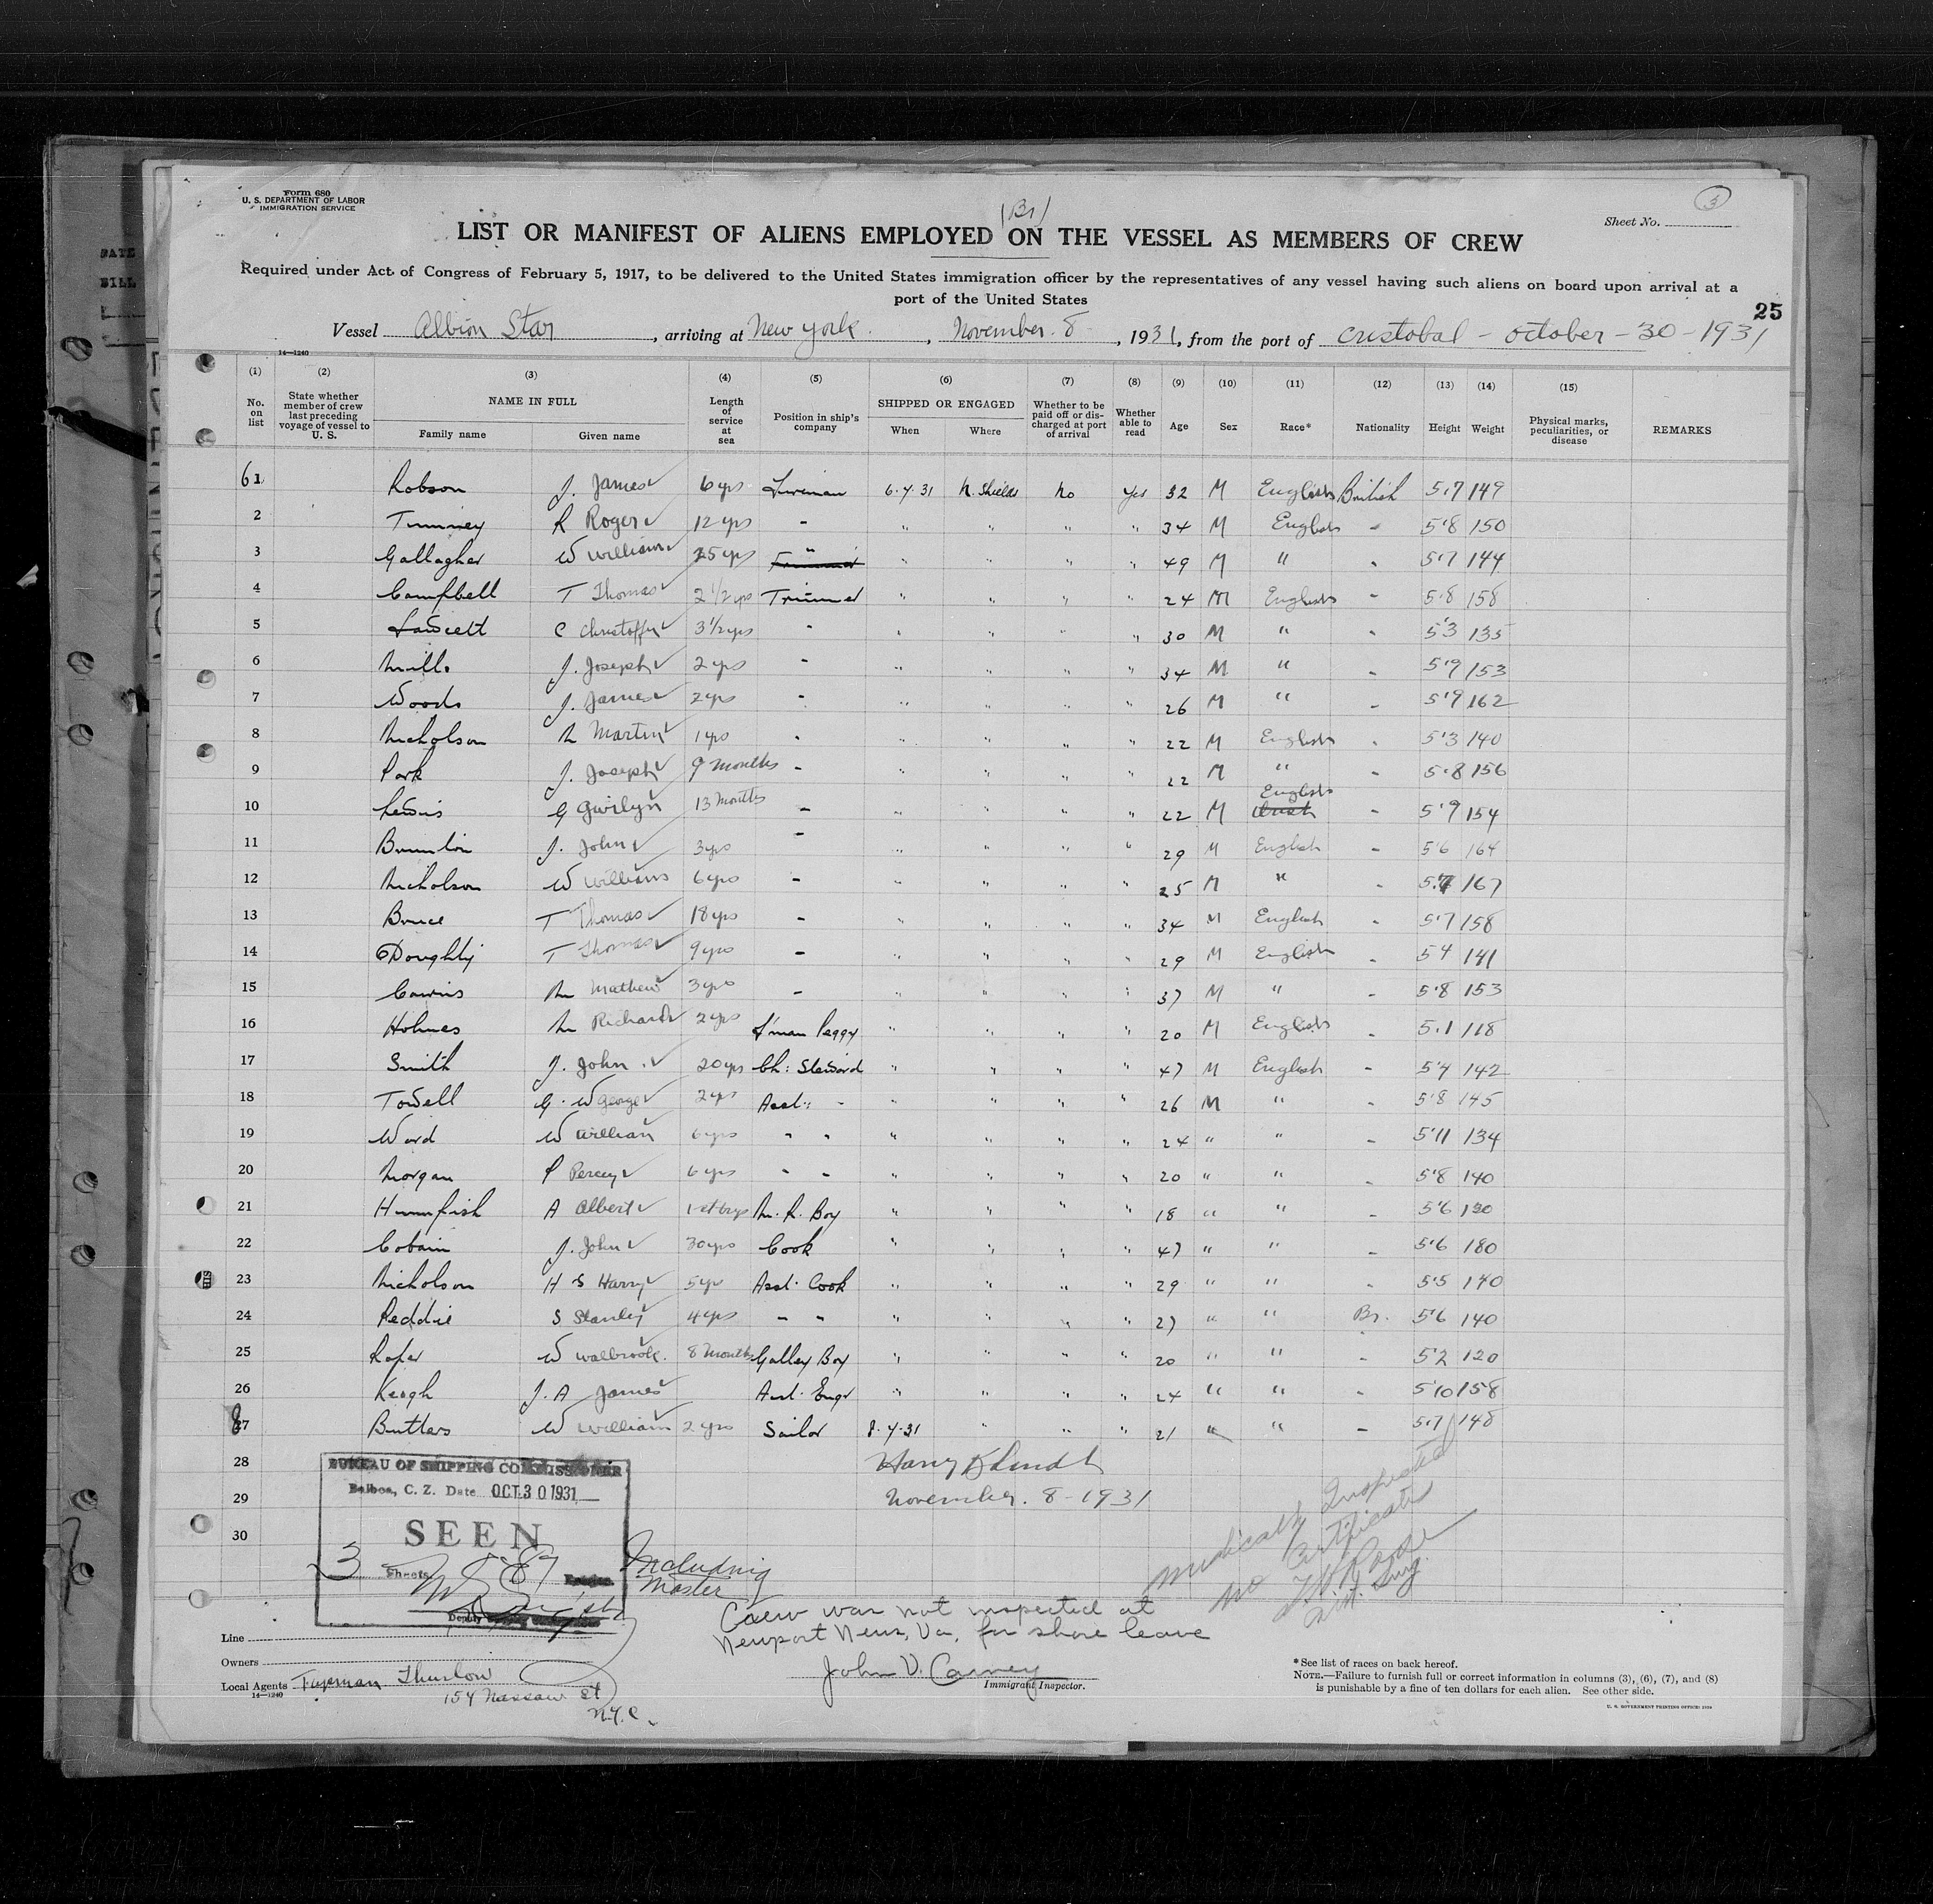 Form 680
U. S. DEPARTMENT OF LABOR
IMMIGRATION SERVICE
(Br)
Sheet No. 3
LIST OR MANIFEST OF ALIENS EMPLOYED ON THE VESSEL AS MEMBERS OF CREW
Required under Act of Congress of February 5, 1917, to be delivered to the United States immigration officer by the representatives of any vessel having such aliens on board upon arrival at a
port of the United States
25
Vessel Albion Star, arriving at New York, November 8, 1931, from the port of Cristobal - October - 30 - 1931
14—1240
(1) (2) (3) (4) (5) (6) (7) (8) (9) (10) (11) (12) (13) (14) (15)
No. on list
State whether member of crew last preceding voyage of vessel to U. S.
NAME IN FULL
Family name Given name
Length of service at sea
Position in ship's company
SHIPPED OR ENGAGED
When Where
Whether to be paid off or discharged at port of arrival
Whether able to read
Age Sex Race* Nationality Height Weight
Physical marks, peculiarities, or disease
REMARKS
61 Robson J. James 6 yrs Fireman 6.7.31 N. Shields No Yes 32 M English British 5.7 149
2 R Roger 12 yrs - " " " " 34 M English " 5'8 150
3 Gallagher W William 25 yrs " " " " " 49 M " " 5.7 144
4 Campbell T Thomas 2 1/2 yrs Trimmer " " " " 24 M English " 5.8 158
5 Fawcett C Christoffer 3 1/2 yrs " " " " " 30 M " " 5'3 135
6 Mills J. Joseph 2 yrs " " " " " 34 M " " 5'9 153
7 Woods J. James 2 yrs " " " " " 26 M " " 5'9 162
8 Nicholson M Martin 1 yrs " " " " " 22 M English " 5'3 140
9 Park J. Joseph 9 months - " " " " 22 M " " 5.8 156
10 Lewis G Gwilyn 13 months - " " " " 22 M English " 5'9 154
11 J. John 3 yrs - " " " " 29 M English " 5'6 164
12 Nicholson W William 6 yrs - " " " " 25 M " " 5.7 167
13 Bruce T Thomas 18 yrs - " " " " 34 M English " 5'7 158
14 Doughty T Thomas 9 yrs - " " " " 29 M English " 5 4 141
15 M Mathew 3 yrs - " " " " 37 M " " 5.8 153
16 Holmes Richard 2 yrs F'man Peggy " " " " 20 M English " 5.1 118
17 Smith J. John 20 yrs Ch: Steward " " " " 47 M English - 5'4 142
18 Towell G. W George 2 yrs Asst: - " " " " 26 M " " 5'8 145
19 Ward W William 6 yrs " " " " " " 24 " " " 5'11 134
20 Morgan P Percy 6 yrs - - " " " " 20 " " " 5'8 140
21 Humfrish A Albert M. R. Boy " " " " 18 " " " 5'6 130
22 Cobain J. John 30 yrs Cook " " " " 47 " " " 5.6 180
23 Nicholson H S Harry 5 yr Asst. Cook " " " " 29 " " " 5'5 140
24 Peddie S Stanley 4 yrs - - " " " " 27 " " Br. 5'6 140
25 Roper W Walbrook 8 months Galley Boy " " " " 20 " " " 5'2 120
26 Keogh J. A James Asst. Engr " " " " 24 " " " 5'10 158
87 Butters W William 2 yrs Sailor 8.7.31 " " " 21 " " - 5.7 148
28
29 November. 8 - 1931
30
BUREAU OF SHIPPING COMMISSIONER
Balboa, C. Z. Date OCT 30 1931
SEEN
3 Sheets 87
Including
Master
Deputy
Medically Inspected
No Certificate
Crew was not inspected at
Newport News, Va, for shore leave
John V. Carney
Immigrant Inspector.
Line
Owners
Local Agents Thurlow
154 Nassau St
N.Y.C.
14—1240
* See list of races on back hereof.
NOTE.—Failure to furnish full or correct information in columns (3), (6), (7), and (8)
is punishable by a fine of ten dollars for each alien. See other side.